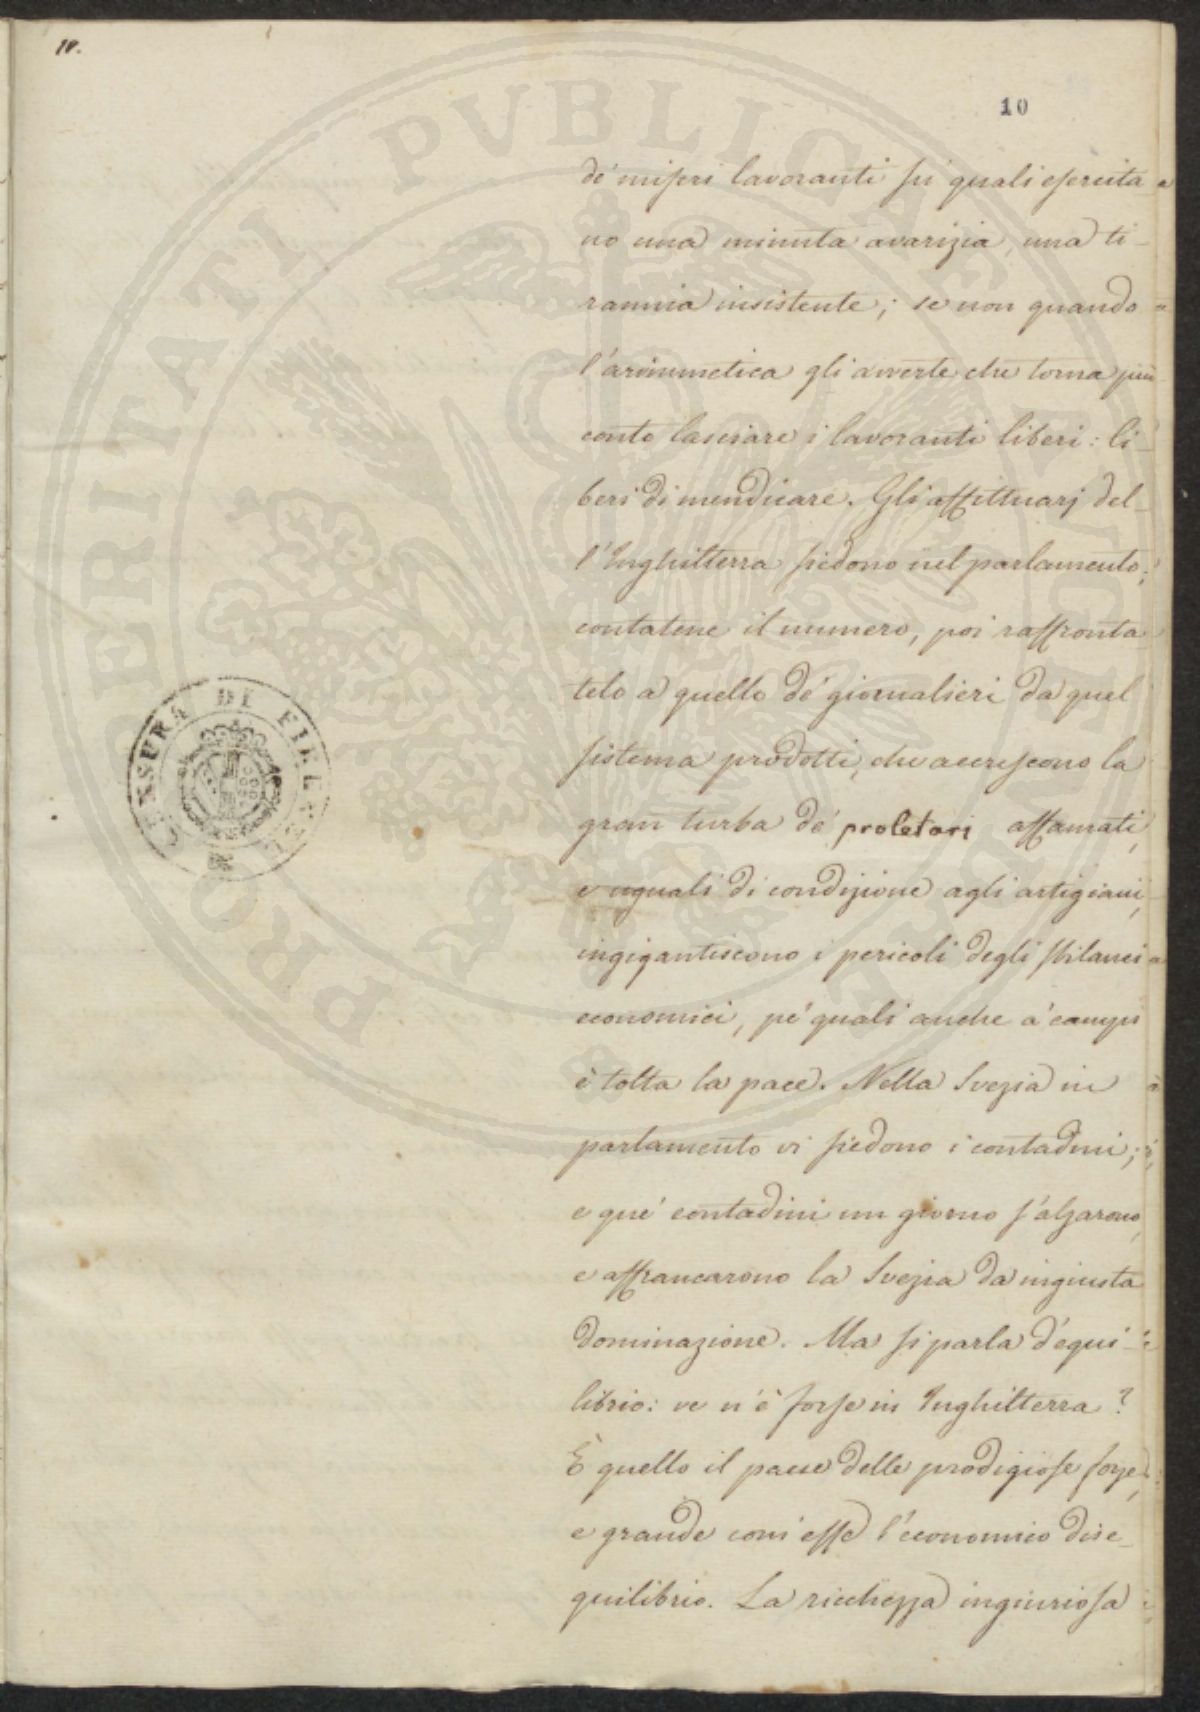 10.
10
de' miseri lavoranti su quali esercita
no una minuta avarizia, una ti-
rannia insistente; se non quando
l'arimmetica gli avverte che torna più
conto lasciare i lavoranti liberi: li-
beri di mendicare. Gli affittuarj del-
l'Inghilterra siedono nel parlamento;
contatene il numero, poi raffronta
telo a quello de' giornalieri da quel
sistema prodotti, che accrescono la
gran turba de' proletari affamati,
e uguali di condizione agli artigiani,
ingigantiscono i pericoli degli sbilanci
economici, pe' quali anche a' campi
è tolta la pace. Nella Svezia in
parlamento vi siedono i contadini;
e que' contadini un giorno s'alzarono,
e affrancarono la Svezia da ingiusta
dominazione. Ma si parla d'equi-
librio: ve n'è forse in Inghilterra?
È quello il paese delle prodigiose forze,
e grande com'esse l'economico dise-
quilibrio. La ricchezza ingiuriosa
CENSURA DI FIRENZE
PROSPERITATI PVBLICAE AVGENDAE